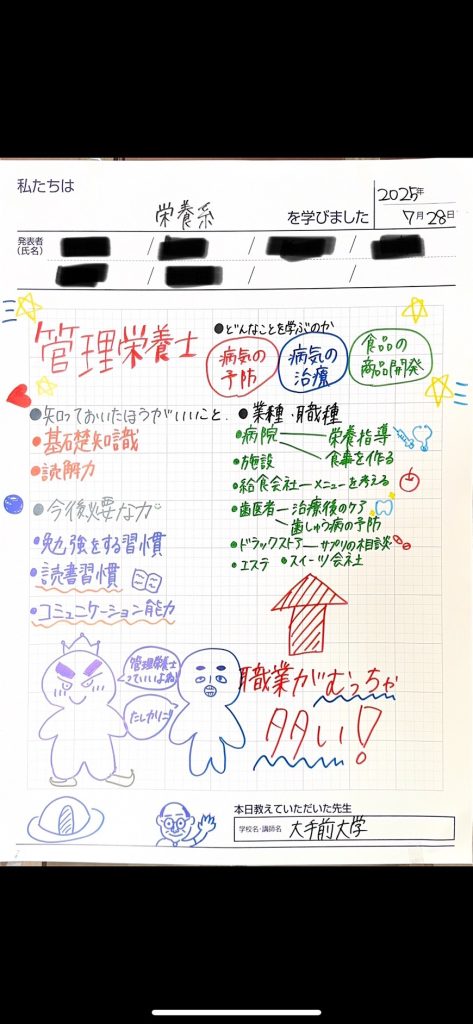 私たちは
栄養系
を学びました
2025年
7月28日
発表者
(氏名)
管理栄養士
●どんなことを学ぶのか
病気の
予防
病気の
治療
食品の
商品開発
●知っておいたほうがいいこと.
・基石楚知識
・読解力
●今後必要な力
・勉強をする習慣
・読書習慣
・コミュニケーション能力
●業種・職種
・病院 ― 栄養指導
食事を作る
・施設
・給食会社―メニューを考える
・歯医者―治療後のケア
歯しゅう病の予防
・ドラックストアーサプリの相談
・エステ ・スイーツ会社
職業がむっちゃ
多い!
管理栄養士
っていいよね!
たしかにこ!
本日教えていただいた先生
学校名・講師名
大手前大学